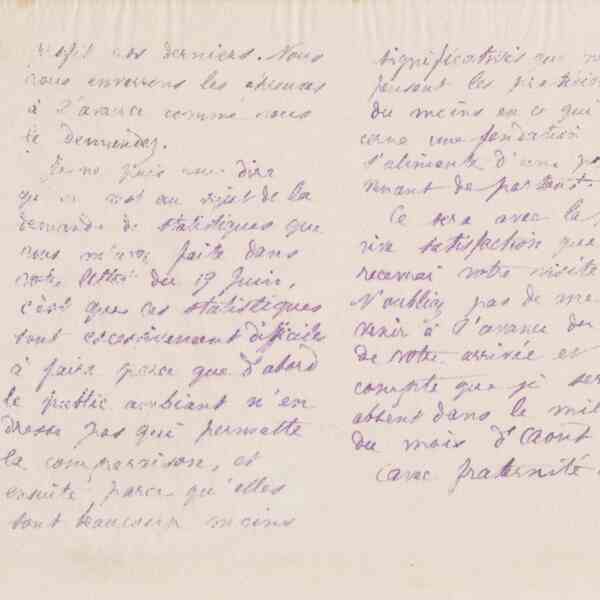 nos derniers. Nous
vous enverrons les mesures
à l'avance comme vous
le demandez.
Je ne puis vous dire
qu'un mot au sujet de la
demande de statistiques que
vous m'avez faite dans
votre lettre du 19 Juin,
c'est que ces statistiques
sont excessivement difficiles
à faire parce que d'abord
le public ambiant n'en
dresse pas qui permette
la comparaison, et
ensuite parce qu'elles
sont beaucoup moins
significatives
pensent les
du moins en ce qui
cerne une fondation
s'alimente d'un
venant de partout.
Ce sera avec la
vive satisfaction que
recevrai votre visite
N'oubliez pas de me
venir à l'avance du
de votre arrivée et
compte que je ser
absent dans le mil
du mois d'Août
avec fraternité